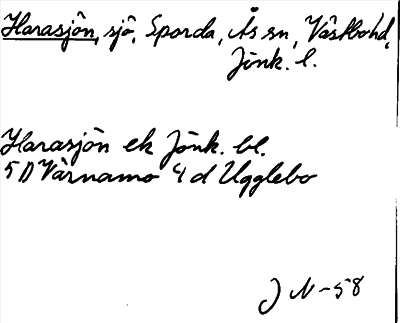 Harasjön, sjö, Sporda, Ås sn, Västbo hd,
Jönk. l.
Harasjön ek Jönk. bl.
5 D Värnamo 4 d Ugglebo
J N-58